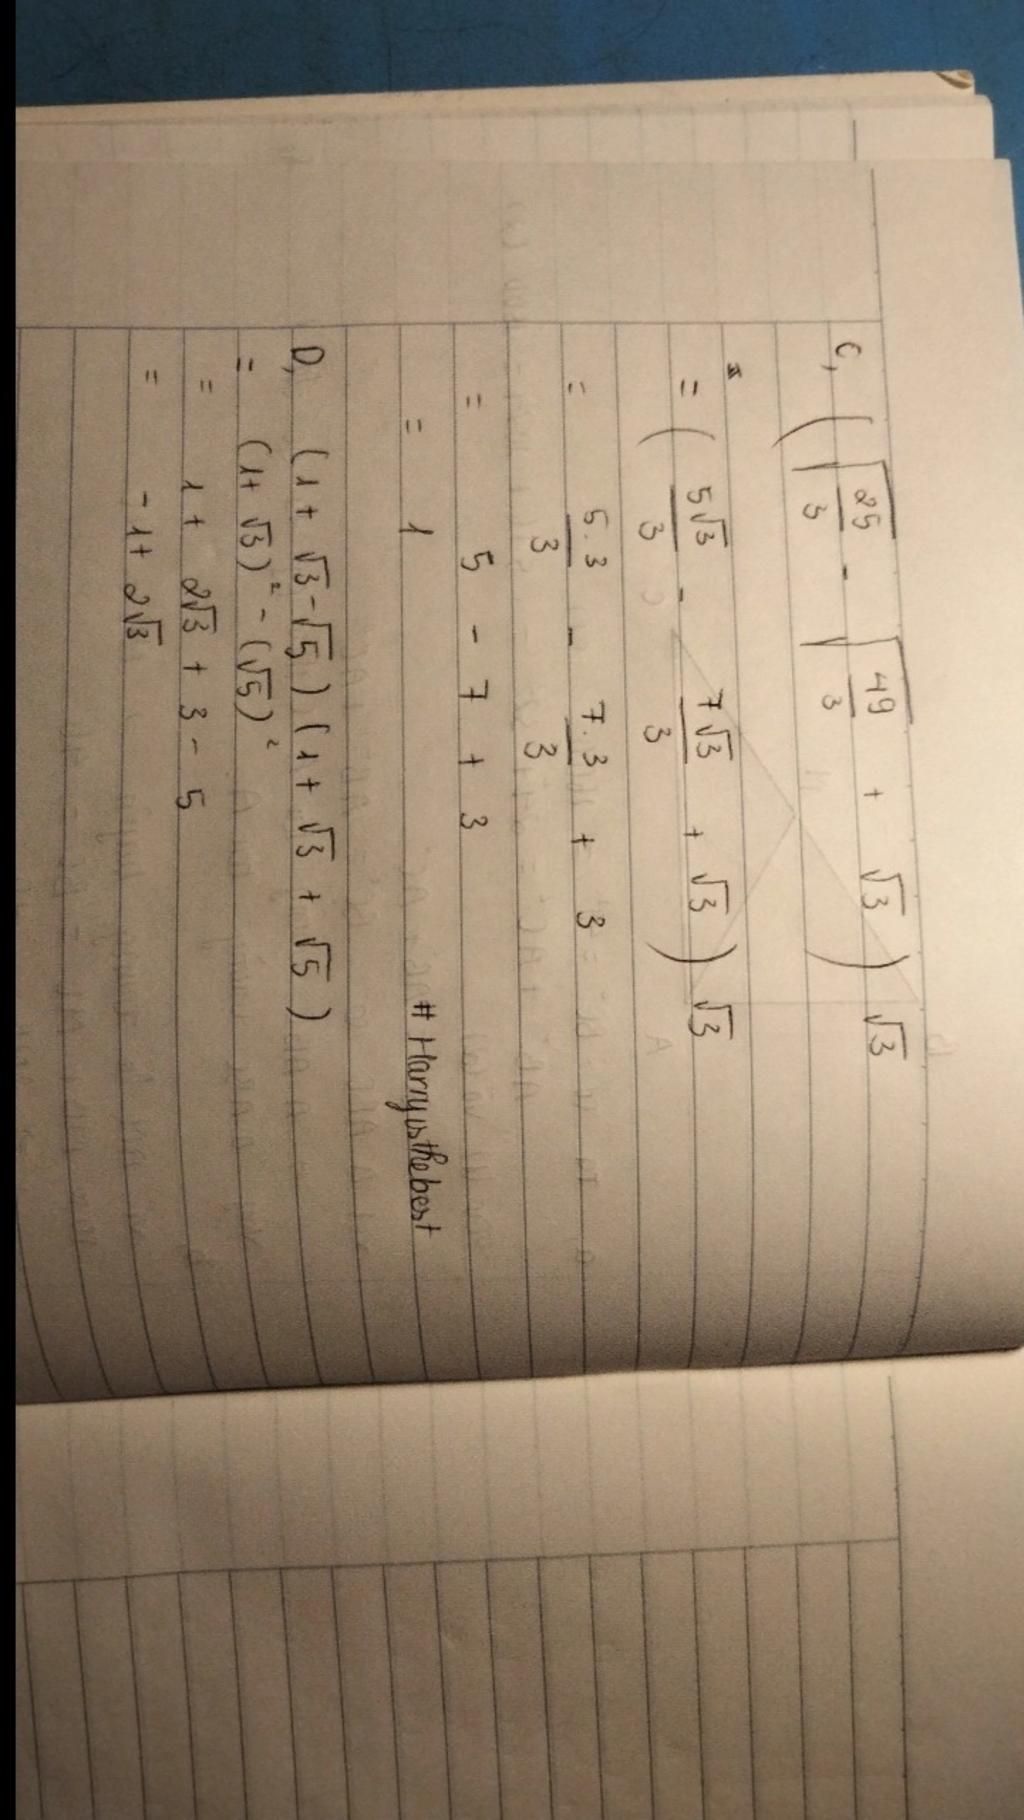 C, (√25/3 - √49/3 + √3) √3
= (5√3/3 - 7√3/3 + √3) √3
= 5.3/3 - 7.3/3 + 3
= 5 - 7 + 3
= 1 # Harryisthebest
D, (1 + √3 - √5) (1 + √3 + √5)
= (1 + √3)² - (√5)²
= 1 + 2√3 + 3 - 5
= - 1 + 2√3